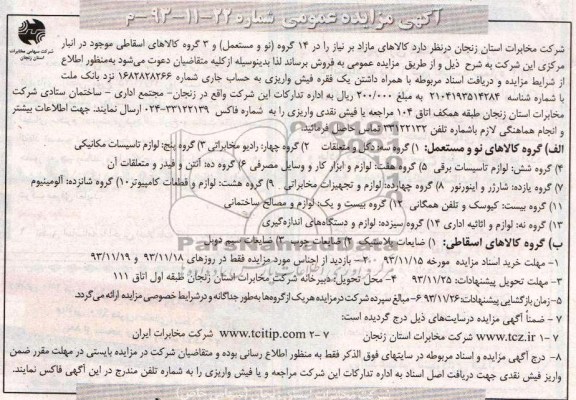 آگهی مزایده عمومی شماره ۲۲-۱۱-۹۳-م
شرکت سهامی مخابرات
استان زنجان
شرکت مخابرات استان زنجان درنظر دارد کالاهای مازاد بر نیاز را در ۱۴ گروه (نو و مستعمل) و ۳ گروه کالاهای اسقاطی موجود در انبار
مرکزی این شرکت به شرح ذیل و از طریق مزایده عمومی به فروش برساند لذا بدینوسیله از کلیه متقاضیان دعوت می‌شود به‌منظور اطلاع
از شرایط مزایده و دریافت اسناد مربوطه با همراه داشتن یک فقره فیش واریزی به حساب جاری شماره ۱۶۸۲۸۲۸۲۶۶ نزد بانک ملت
با شماره شناسه ۲۱۰۴۱۹۳۵۱۴۲۸۴ به مبلغ ۲۰۰/۰۰۰ ریال به اداره تدارکات این شرکت واقع در زنجان- مجتمع اداری - ساختمان ستادی شرکت
مخابرات استان زنجان طبقه همکف اتاق ۱۰۴ مراجعه یا فیش نقدی واریزی را به شماره فاکس ۳۳۱۲۲۱۳۹-۰۲۴ ارسال نمایند. جهت اطلاعات بیشتر
و انجام هماهنگی لازم باشماره تلفن ۳۳۱۲۲۱۳۲ تماس حاصل فرمائید.
الف) گروه کالاهای نو و مستعمل: ۱) گروه سه: دکل و متعلقات ۲) گروه چهار: رادیو مخابراتی ۳) گروه پنج: لوازم تاسیسات مکانیکی
۴) گروه شش: لوازم تاسیسات برقی ۵) گروه هفت: لوازم و ابزار کار و وسایل مصرفی ۶) گروه ده: آنتن و فیدر و متعلقات آن
۷) گروه یازده: شارژر و اینورتور ۸) گروه چهارده: لوازم و تجهیزات مخابراتی ۹) گروه هشت: لوازم و قطعات کامپیوتر ۱۰) گروه شانزده: آلومینیوم
۱۱) گروه بیست: کیوسک و تلفن همگانی ۱۲) گروه بیست و یک: لوازم و مصالح ساختمانی
۱۳) گروه نه: لوازم و اثاثیه اداری ۱۴) گروه سیزده: لوازم و دستگاه‌های اندازه‌گیری
ب) گروه کالاهای اسقاطی: ۱) ضایعات پلاستیک ۲) ضایعات چوب ۳) ضایعات سیم دوبل
۱- مهلت خرید اسناد مزایده مورخه ۹۳/۱۱/۱۵ ۲- بازدید از اجناس مورد مزایده فقط در روزهای ۹۳/۱۱/۱۸ و ۹۳/۱۱/۱۹
۳- مهلت تحویل پیشنهادات: ۹۳/۱۱/۲۵ ۴- محل تحویل: دبیرخانه شرکت مخابرات استان زنجان طبقه اول اتاق ۱۱۱
۵- زمان بازگشایی پیشنهادات: ۹۳/۱۱/۲۶ ۶- مبالغ سپرده شرکت در مزایده هریک از گروه‌ها به‌طور جداگانه و در شرایط خصوصی مزایده ارائه می‌گردد.
۷- ضمناً آگهی مزایده درسایت‌های ذیل درج گردیده است:
۷-۱ www.tcz.ir شرکت مخابرات استان زنجان ۷-۲ www.tcitip.com شرکت مخابرات ایران
۸- درج آگهی مزایده و اسناد مربوطه در سایتهای فوق الذکر فقط به منظور اطلاع رسانی بوده و متقاضیان شرکت در مزایده بایستی در مهلت مقرر ضمن
واریز فیش نقدی جهت دریافت اصل اسناد به اداره تدارکات این شرکت مراجعه و یا فیش واریزی را به شماره تلفن مندرج در این آگهی فاکس نمایند.